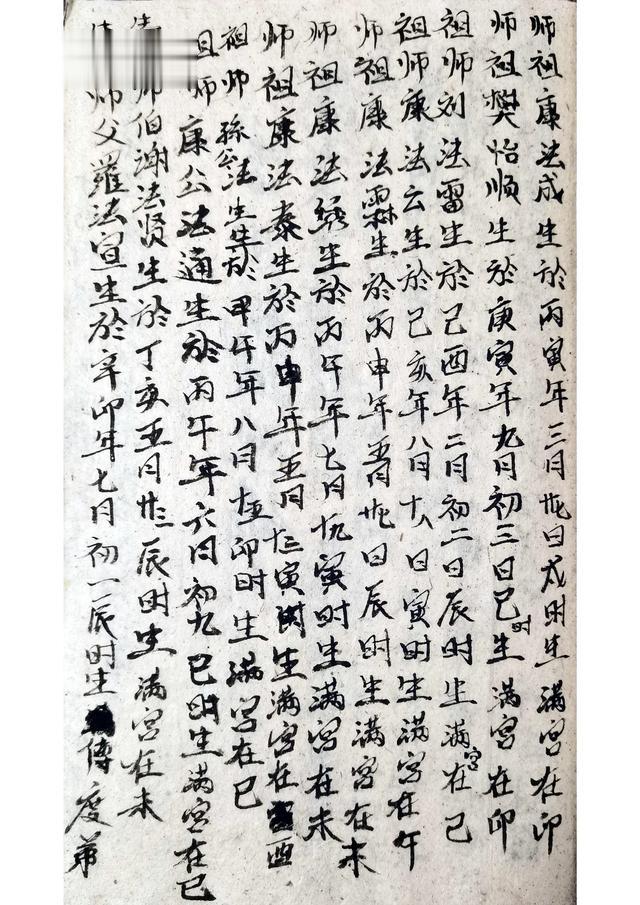 师祖康法成生於丙寅年三月廿七日戌时生满宫在卯
师祖樊怡顺生於庚寅年九月初三日巳时生满宫在卯
祖师刘法雷生於己酉年二月初二日辰时生满宫在己
祖师康法云生於己亥年八月十八日寅时生满宫在午
师祖康法霖生於丙申年五月廿七日辰时生满宫在未
师祖康法生於丙午年七月十九寅时生满宫在未
师祖康法泰生於丙申年五月十三寅时生满宫在酉
祖师孫公法生生於甲午年八月十五卯时生满宫在巳
师康公法通生於丙午年六月初九巳时生满宫在巳
师伯谢法贤生於丁亥五月廿三辰时生满宫在未
师父羅法宣生於辛卯年七月初一辰时生傅度弟